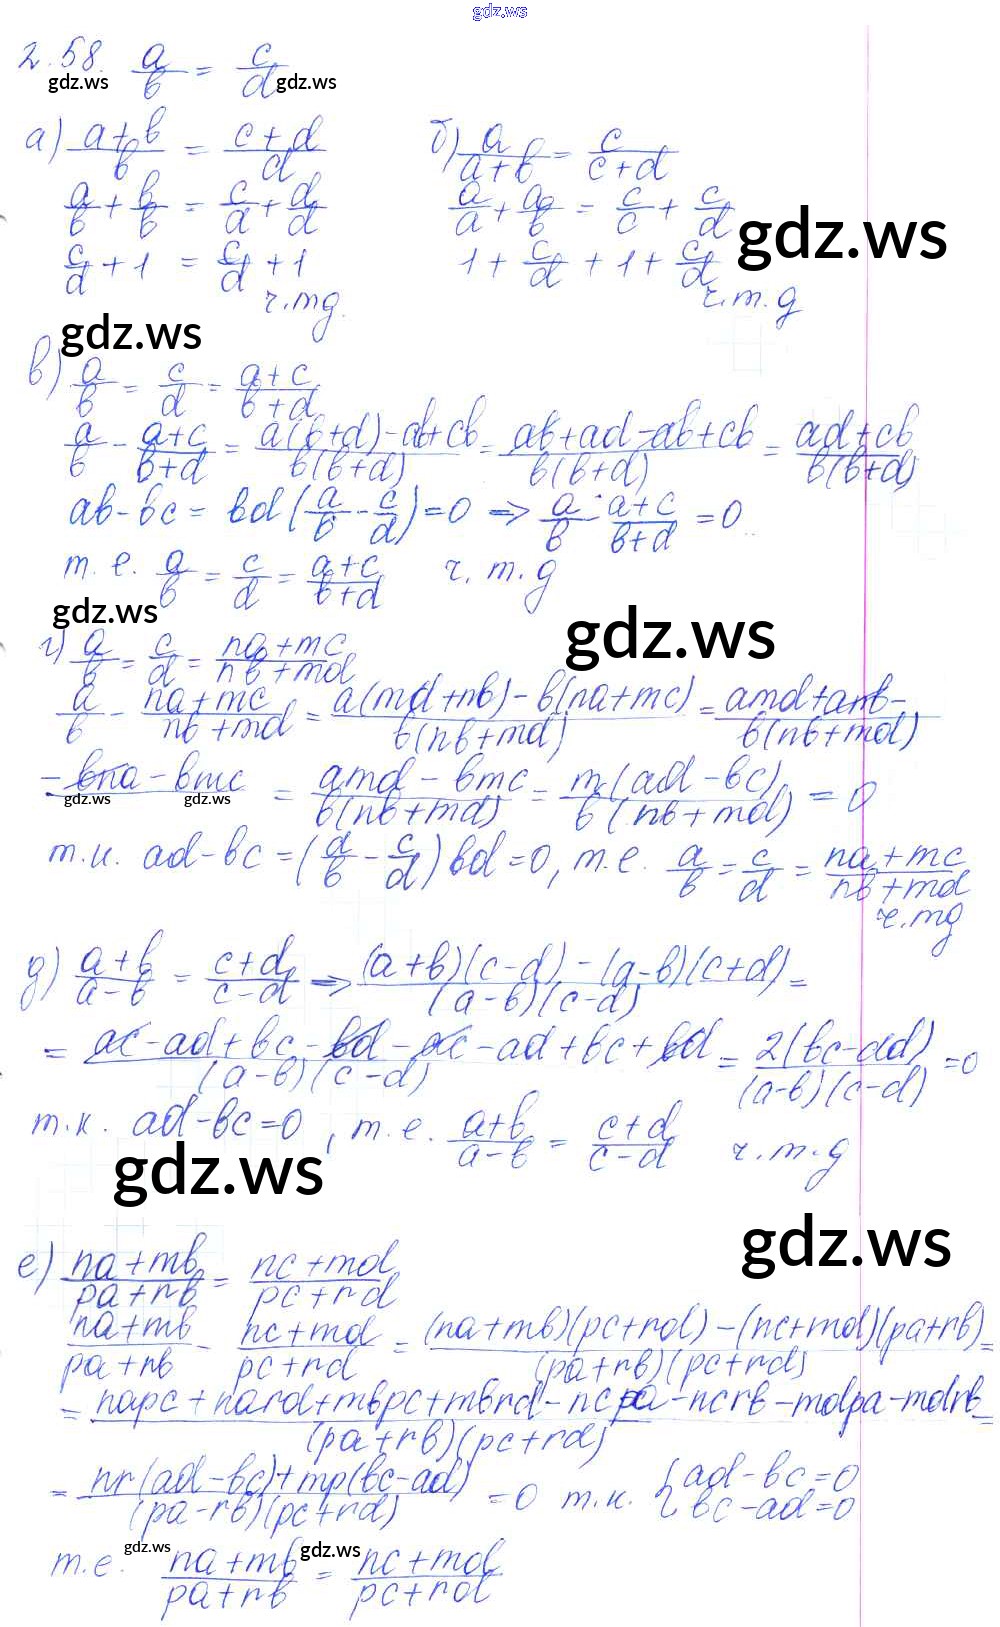 gdz.ws
2.58. a/b = c/d
gdz.ws gdz.ws
а) (a+b)/b = (c+d)/d б) a/(a+b) = c/(c+d)
a/b + b/b = c/d + d/d a/a + a/b = c/c + c/d
gdz.ws
c/d + 1 = c/d + 1 1 + c/d + 1 + c/d
ч.тд. ч.т.д
gdz.ws
в) a/b = c/d = (a+c)/(b+d)
a/b - (a+c)/(b+d) = (a(b+d)-ab+cb)/(b(b+d)) = (ab+ad-ab+cb)/(b(b+d)) = (ad+cb)/(b(b+d))
ab-bc = bd(a/b - c/d) = 0 => a/b - (a+c)/(b+d) = 0
т.е. a/b = c/d = (a+c)/(b+d) ч.т.д
gdz.ws gdz.ws
г) a/b = c/d = (na+mc)/(nb+md)
a/b - (na+mc)/(nb+md) = (a(md+nb)-b(na+mc))/(b(nb+md)) = (amd+anb-)/(b(nb+md))
-bna-bmc = (amd-bmc)/(b(nb+md)) = (m(ad-bc))/(b(nb+md)) = 0
gdz.ws gdz.ws
т.к. ad-bc = (a/b - c/d)bd = 0, т.е. a/b = c/d = (na+mc)/(nb+md)
ч.тд
д) (a+b)/(a-b) = (c+d)/(c-d) => ((a+b)(c-d)-(a-b)(c+d))/((a-b)(c-d)) =
= (ac-ad+bc-bd-ac-ad+bc+bd)/((a-b)(c-d)) = (2(bc-ad))/((a-b)(c-d)) = 0
т.к. ad-bc=0, т.е. (a+b)/(a-b) = (c+d)/(c-d) ч.т.д
gdz.ws
gdz.ws
е) (na+mb)/(pa+rb) = (nc+md)/(pc+rd)
(na+mb)/(pa+rb) - (nc+md)/(pc+rd) = ((na+mb)(pc+rd)-(nc+md)(pa+rb))/((pa+rb)(pc+rd)) =
= (napc+nard+mbpc+mbrd-ncpa-ncrb-mdpa-mdrb)/((pa+rb)(pc+rd)) =
= (nr(ad-bc)+mp(bc-ad))/((pa-rb)(pc+rd)) = 0 т.к. { ad-bc=0
bc-ad=0
gdz.ws gdz.ws
т.е. (na+mb)/(pa+rb) = (nc+md)/(pc+rd)